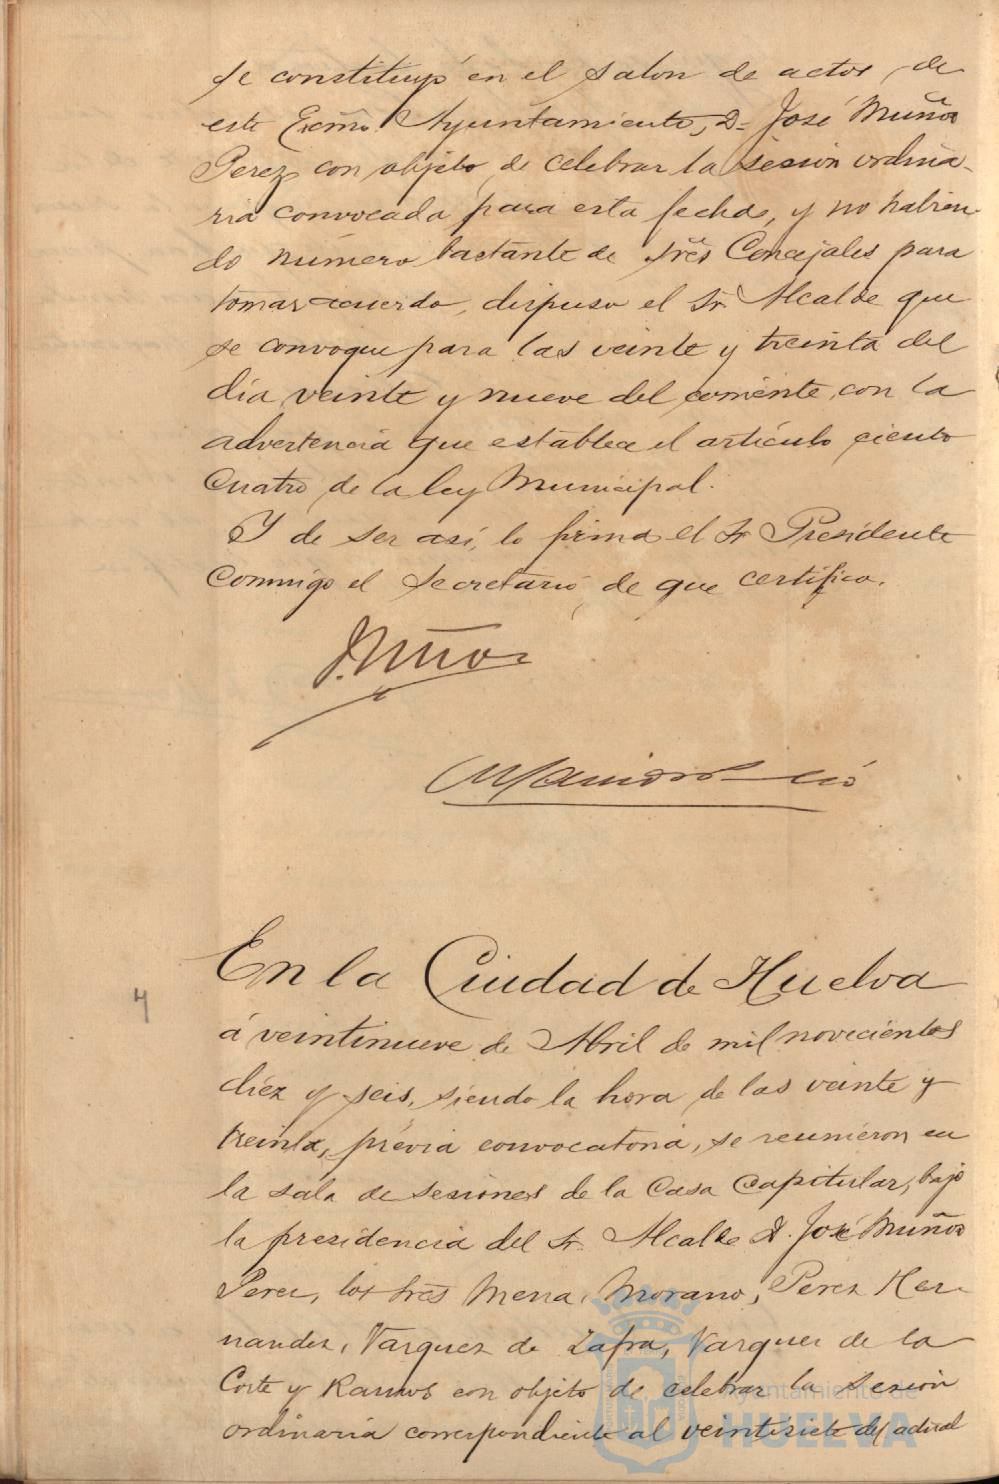 se constituyó en el salon de actos de
este Excmo. Ayuntamiento, D. José Muñoz
Perez con objeto de celebrar la sesión ordina-
ria convocada para esta fecha, y no habien-
do número bastante de Sres Concejales para
tomar acuerdo, dispuso el Sr. Alcalde que
se convoque para las veinte y treinta del
día veinte y nueve del corriente con la
advertencia que establece el artículo ciento
cuatro de la ley Municipal.
Y de ser así, lo firma el Sr Presidente
conmigo el Secretario, de que certifico.
J. Muñoz
En la Ciudad de Huelva
4
á veintinueve de Abril de mil novecientos
diez y seis, siendo la hora de las veinte y
treinta, prévia convocatoria, se reunieron en
la sala de sesiones de la Casa Capitular, bajo
la presidencia del Sr. Alcalde D. José Muñoz
Perez, los Sres Mena, Morano, Perez Her-
nandez, Vazquez de Zafra, Vazquez de la
Corte y Ramos con objeto de celebrar la sesión
ordinaria correspondiente al veintisiete del actual
Ayuntamiento de
HUELVA